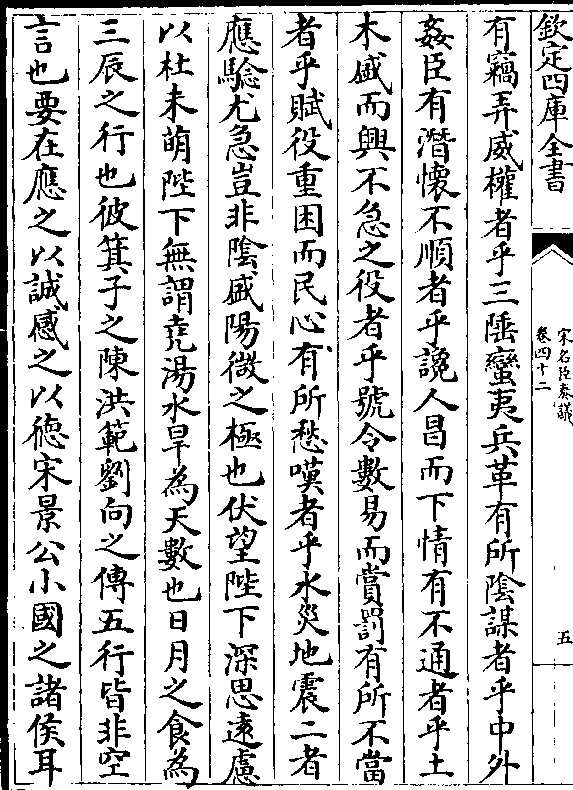 欽定四庫全書
宋名臣奏議
卷四十二
五
有竊弄威權者乎三陲蠻夷兵革有所陰謀者乎中外
姦臣有潛懷不順者乎讒人昌而下情有不通者乎土
木盛而興不急之役者乎號令數易而賞罰有所不當
者乎賦役重困而民心有所愁嘆者乎水災地震二者
應驗尤急豈非陰盛陽微之極也伏望陛下深思遠慮
以杜未萌陛下無謂堯湯水旱為天數也日月之食為
三辰之行也彼箕子之陳洪範劉向之傳五行皆非空
言也要在應之以誠感之以德宋景公小國之諸侯耳